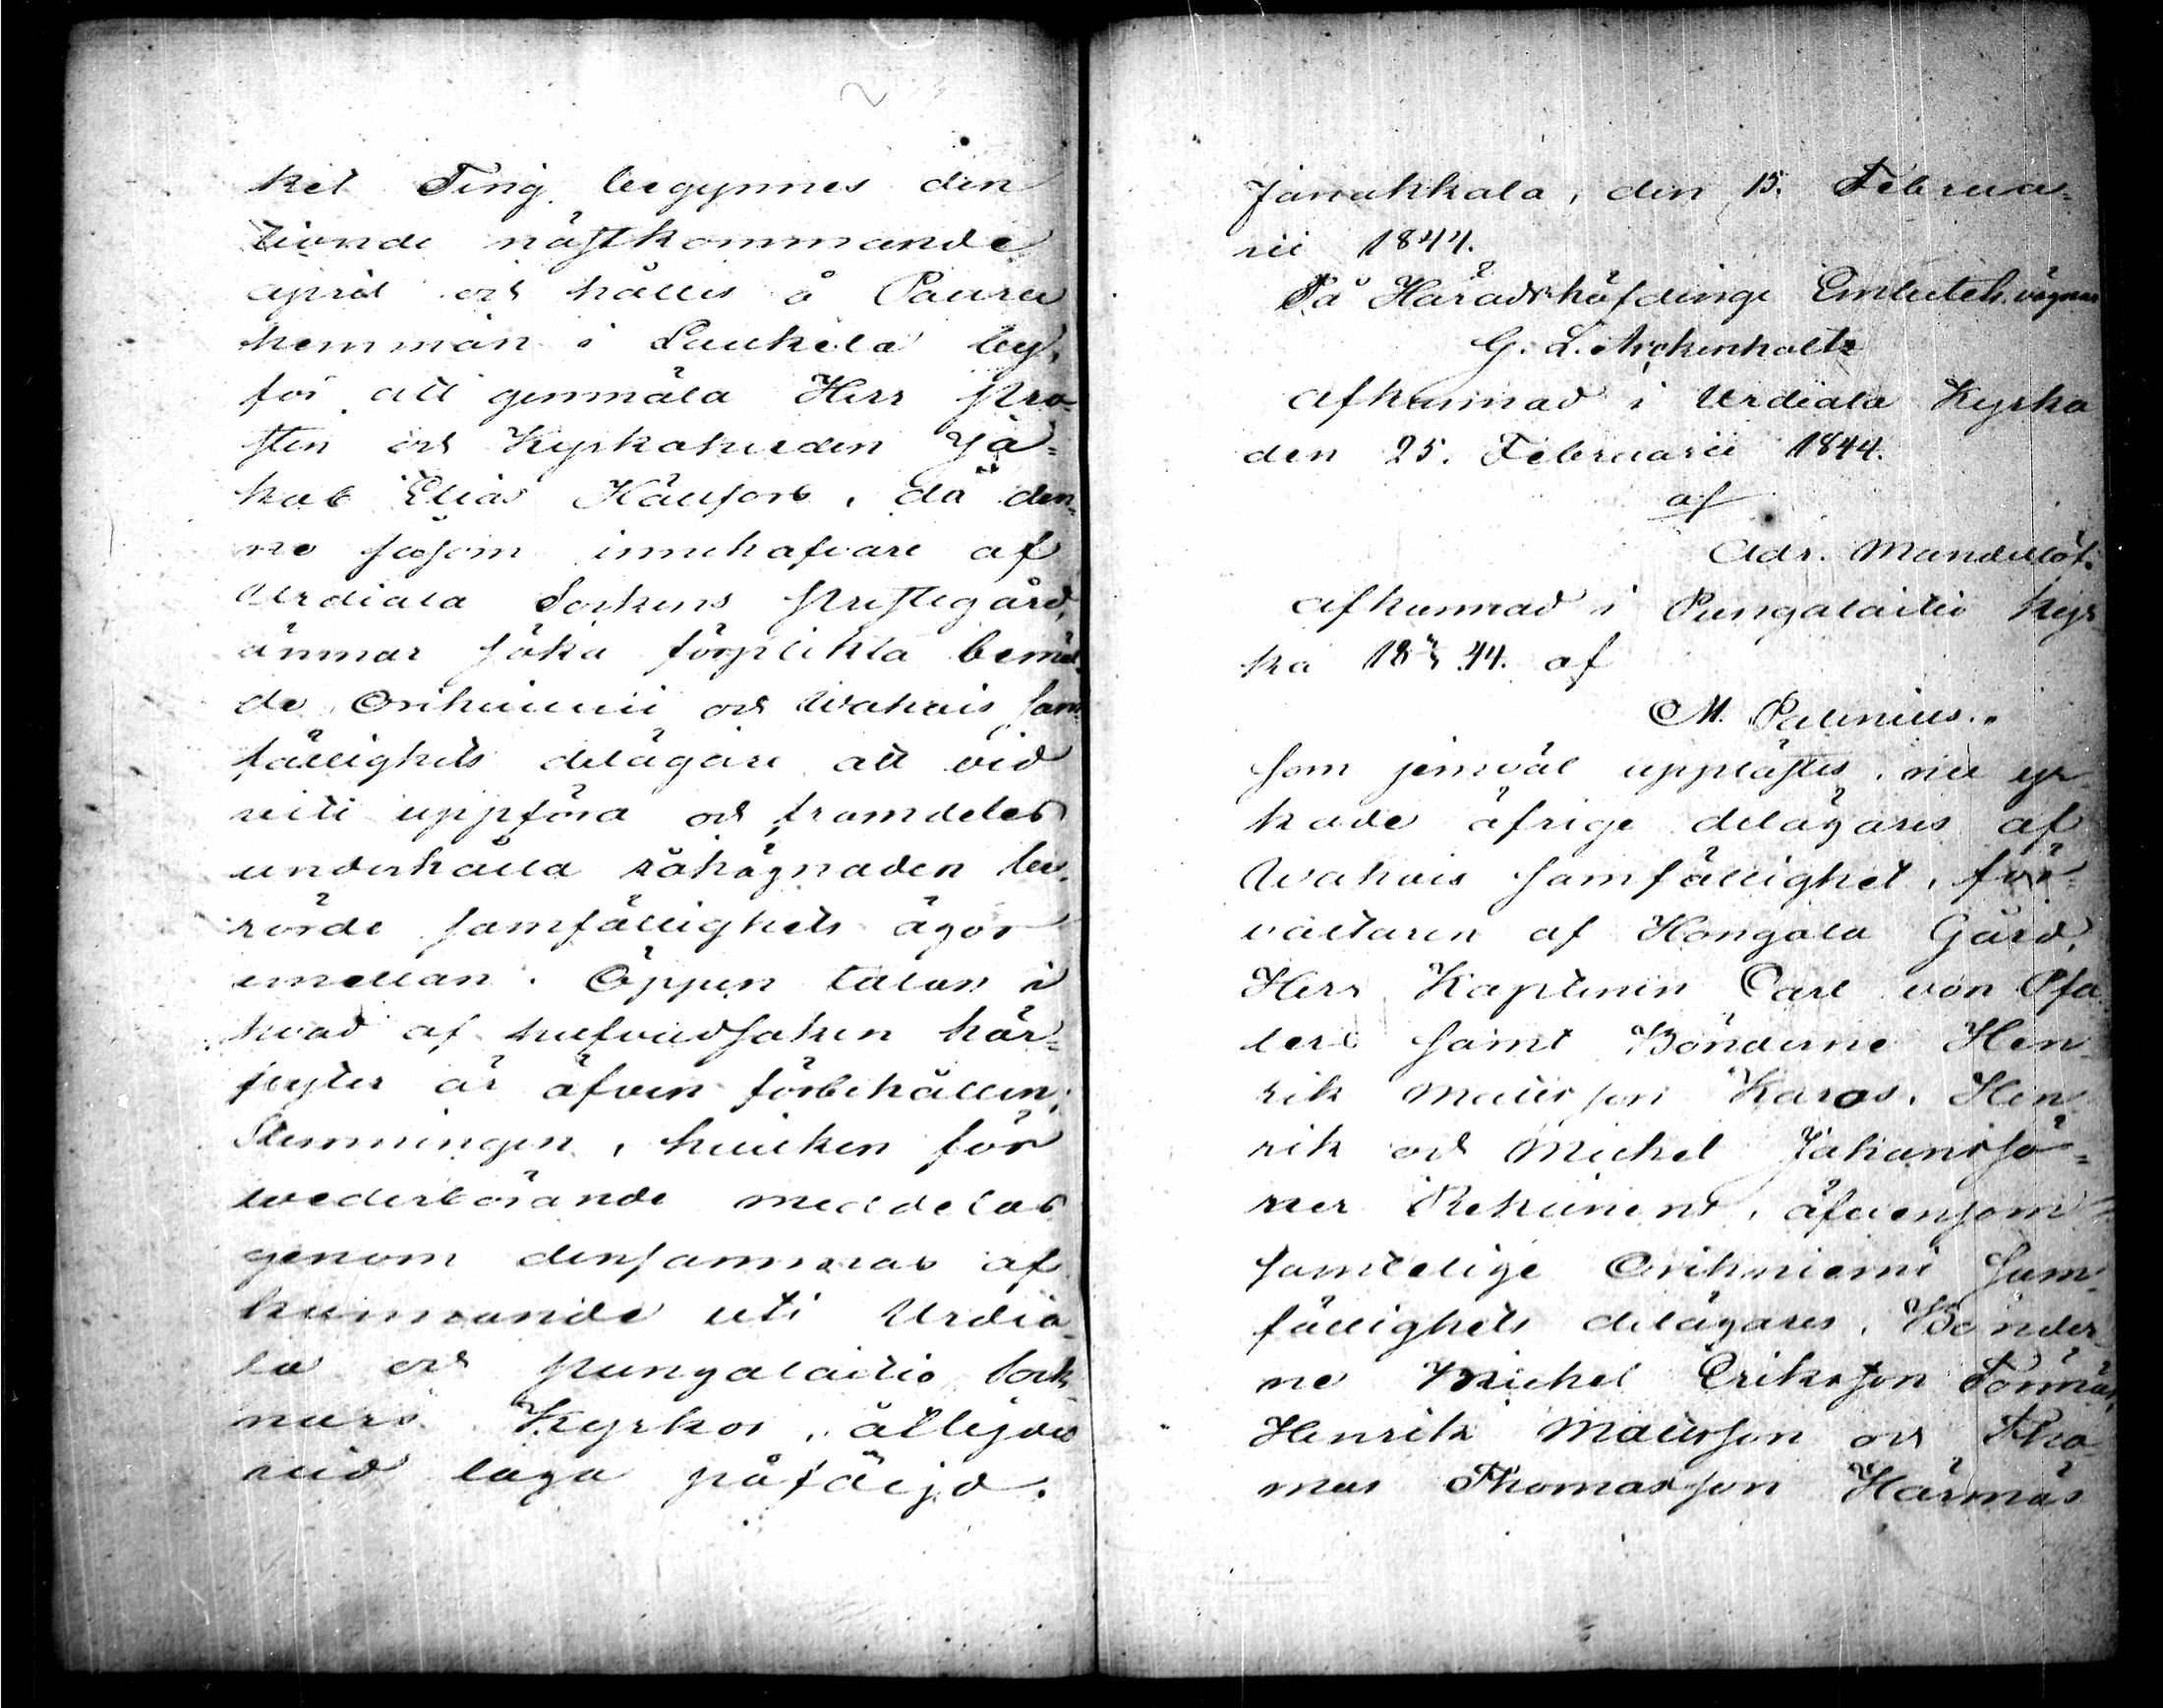 ket Ting begynnes den
tionde nästkommande
april och hålles å Pauru
hemman i Laukela by,
för att genmäla Herr Pro-
sten och Kyrkoherden Ja-
kob Elias Hällfors, då den-
ne såsom innehafvare af
Urdiala Sockens Prestegård,
ämnar söka förplikta bemäl-
de Orihniemi och Wahois sam-
fällighets delägare att vid
vite uppföra och framdeles
underhålla råhägnaden be-
rörde samfällighets ägor
emellan. Öppen talan i
hvad af hufvudsaken här-
flyter är äfven förbehållen;
Stemningen, hvilken för
wederbörande meddelas
genom densammas af-
kunnande uti Urdia-
la och Pungalaitio sock-
nars Kyrkor, åtlyda
vid laga påföljd.
Janakkala, den 15. Februa-
rii 1844.
På Häradshöfdinge Embetets vägnar
G. L. Archenholtz
Afkunnad i Urdiala Kyrka
den 25. Februarii 1844.
af
Adr. Mandellöf.
Afkunnad i Pungalaitio kyr-
ka 18 44. af
M. Palinius."
som jemväl upplästes, nu yr-
kade öfrige delägares af
Wahois samfällighet, för-
valtaren af Hongola Gård,
Herr Kaptenen Carl von Pfa-
ler samt Bönderne Hen-
rik Mattsson Karos, Hen-
rik och Michel Johansso-
ner Rekunens, äfvensom
samtelige Orihniemi sam-
fällighets delägares, Bönder-
ne Michel Eriksson Sönnäs,
Henrik Mattsson och Tho-
mas Thomasson Härmäs